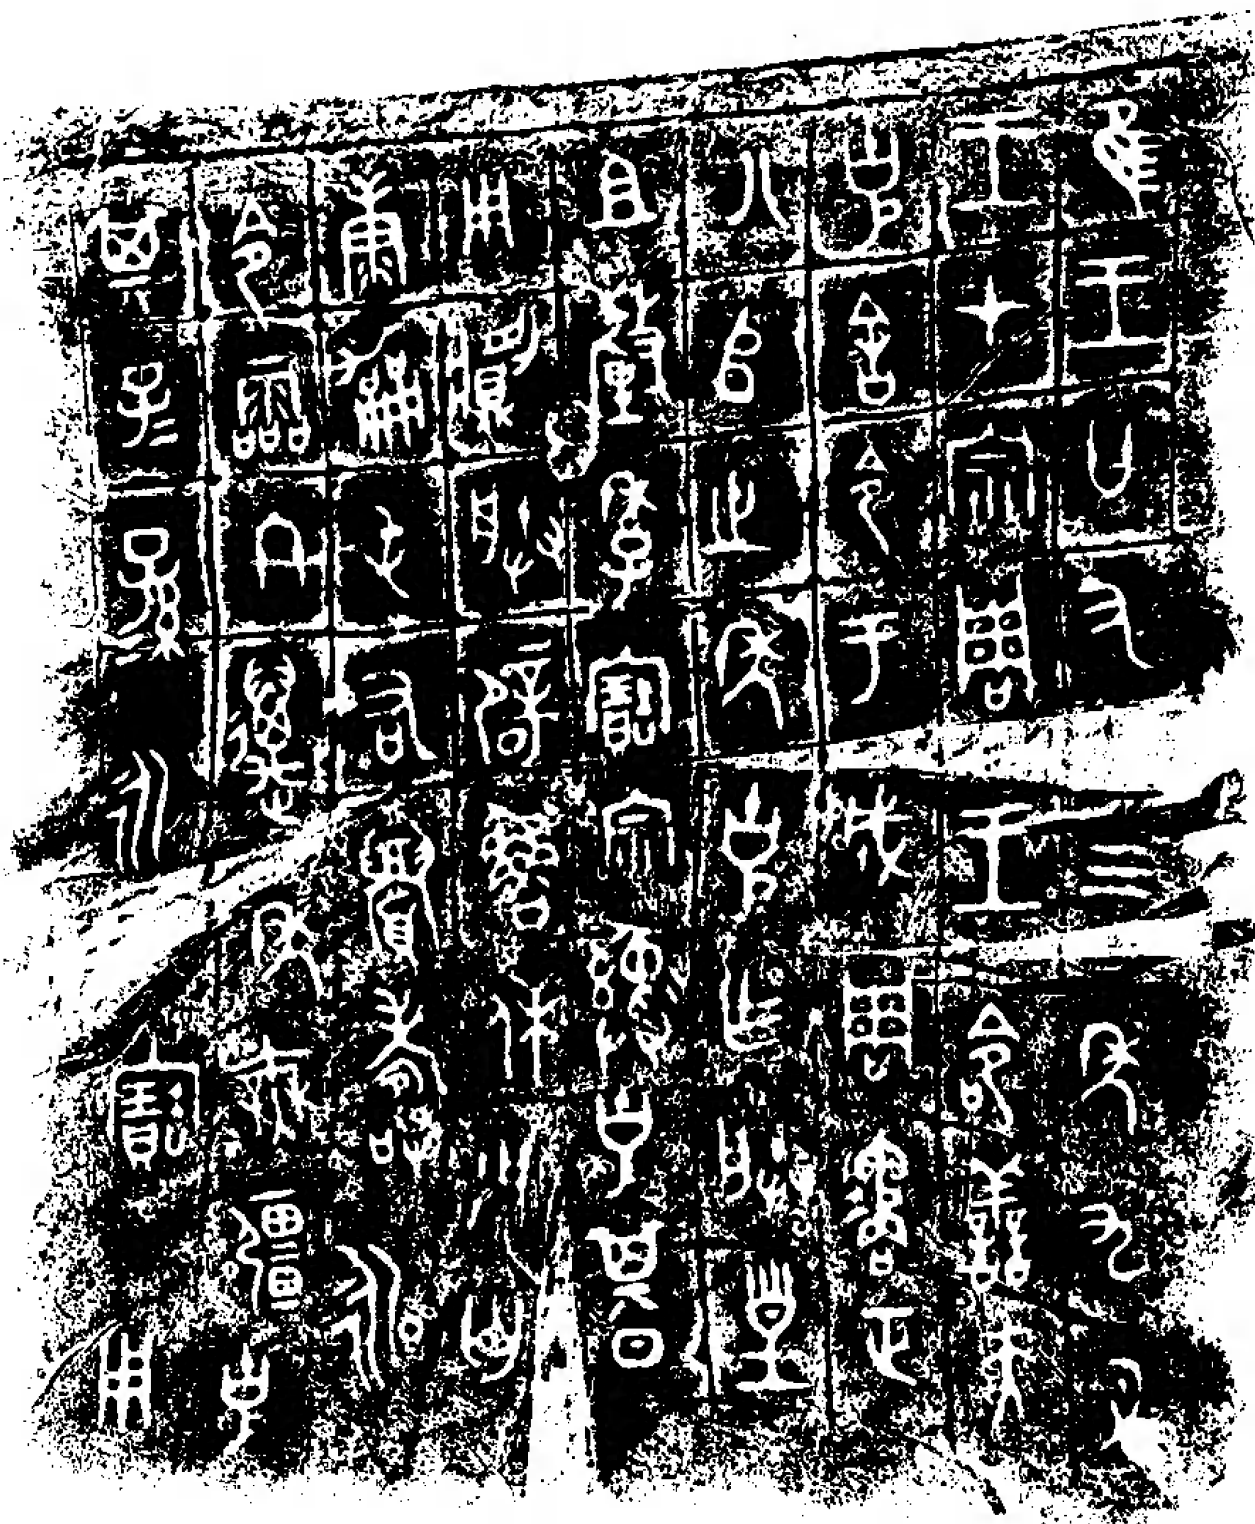 隹王廿又三年九月
王才宗周王命善夫
克舍令于成周遹正
八𠂤之年克乍朕皇
且釐季寶宗彝克其日
用𩰬朕辟魯休用匄
康勱屯右眉壽永
令霝冬邁年無彊克
其子=孫=永寶用